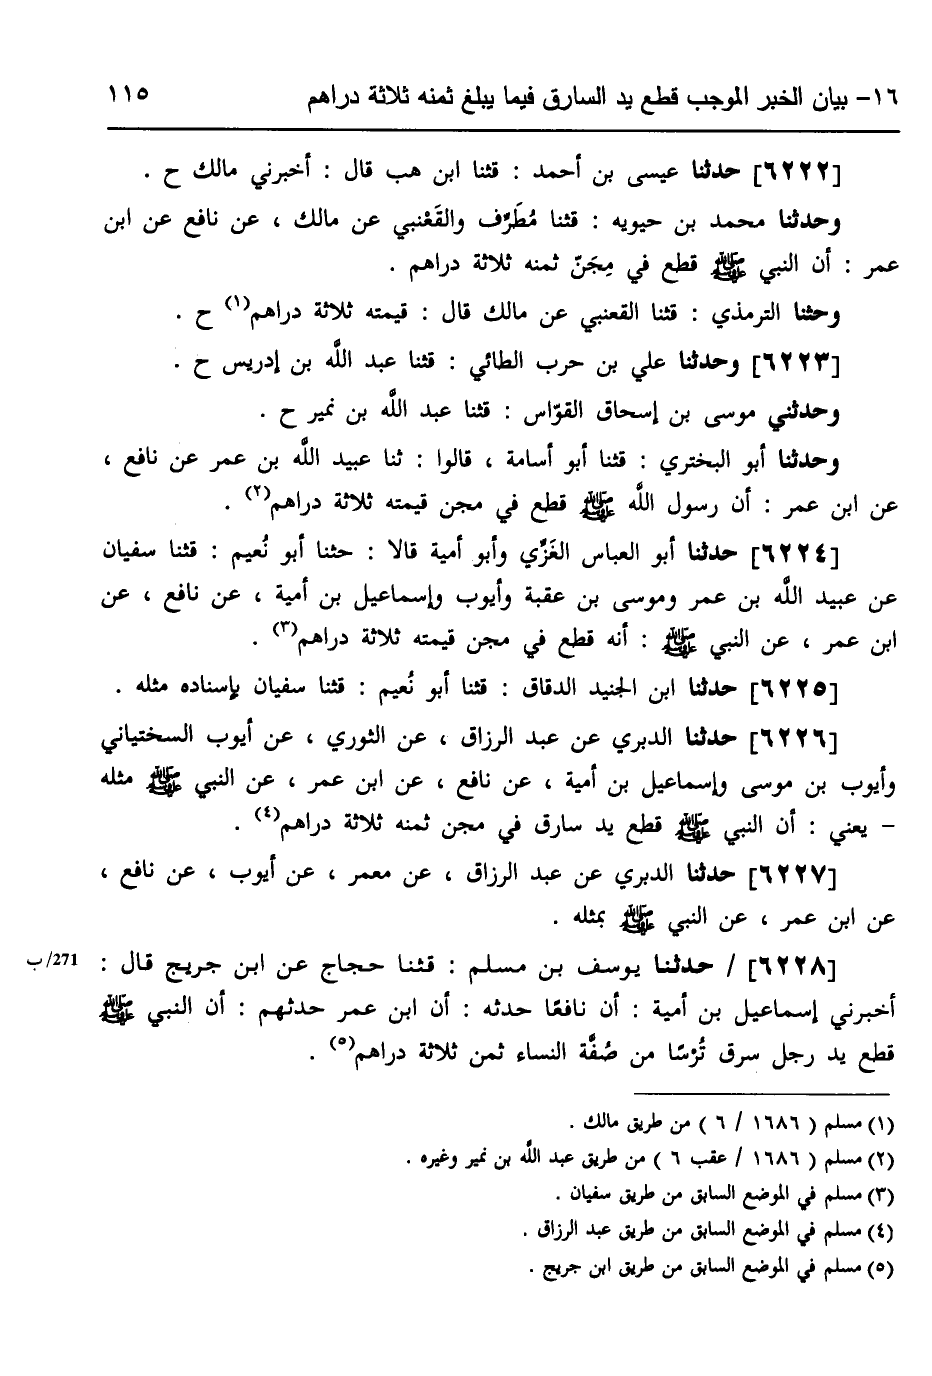 ١٦- بيان الخبر الموجب قطع يد السارق فيما يبلغ ثمنه ثلاثة دراهم ١١٥
[٦٢٢٢] حدثنا عيسى بن أحمد : قثنا ابن هب قال : أخبرني مالك ح .
وحدثنا محمد بن حيويه : قثنا مُطَرِّف والقَعْنبي عن مالك ، عن نافع عن ابن
عمر : أن النبي ﷺ قطع في مِجَنّ ثمنه ثلاثة دراهم .
وحثنا الترمذي : قثنا القعنبي عن مالك قال : قيمته ثلاثة دراهم(١) ح .
[٦٢٢٣] وحدثنا علي بن حرب الطائي : قثنا عبد اللَّه بن إدريس ح .
وحدثني موسى بن إسحاق القوّاس : قثنا عبد اللَّه بن نمير ح .
وحدثنا أبو البختري : قثنا أبو أسامة ، قالوا : ثنا عبيد اللَّه بن عمر عن نافع ،
عن ابن عمر : أن رسول اللَّه ﷺ قطع في مجن قيمته ثلاثة دراهم(٢) .
[٦٢٢٤] حدثنا أبو العباس الغَزِّي وأبو أمية قالا : حثنا أبو نُعيم : قثنا سفيان
عن عبيد اللَّه بن عمر وموسى بن عقبة وأيوب وإسماعيل بن أمية ، عن نافع ، عن
ابن عمر ، عن النبي ﷺ : أنه قطع في مجن قيمته ثلاثة دراهم(٣) .
[٦٢٢٥] حدثنا ابن الجنيد الدقاق : قثنا أبو نُعيم : قثنا سفيان بإسناده مثله .
[٦٢٢٦] حدثنا الدبري عن عبد الرزاق ، عن الثوري ، عن أيوب السختياني
وأيوب بن موسى وإسماعيل بن أمية ، عن نافع ، عن ابن عمر ، عن النبي ﷺ مثله
- يعني : أن النبي ﷺ قطع يد سارق في مجن ثمنه ثلاثة دراهم(٤) .
[٦٢٢٧] حدثنا الدبري عن عبد الرزاق ، عن معمر ، عن أيوب ، عن نافع ،
عن ابن عمر ، عن النبي ﷺ بمثله .
[٦٢٢٨] / حدثنا يوسف بن مسلم : قثنا حجاج عن ابن جريج قال : 271/ب
أخبرني إسماعيل بن أمية : أن نافعًا حدثه : أن ابن عمر حدثهم : أن النبي ﷺ
قطع يد رجل سرق تُرْسًا من صُفَّة النساء ثمن ثلاثة دراهم(٥) .
(١) مسلم ( ١٦٨٦ / ٦ ) من طريق مالك .
(٢) مسلم ( ١٦٨٦ / عقب ٦ ) من طريق عبد اللَّه بن نمير وغيره .
(٣) مسلم في الموضع السابق من طريق سفيان .
(٤) مسلم في الموضع السابق من طريق عبد الرزاق .
(٥) مسلم في الموضع السابق من طريق ابن جريج .